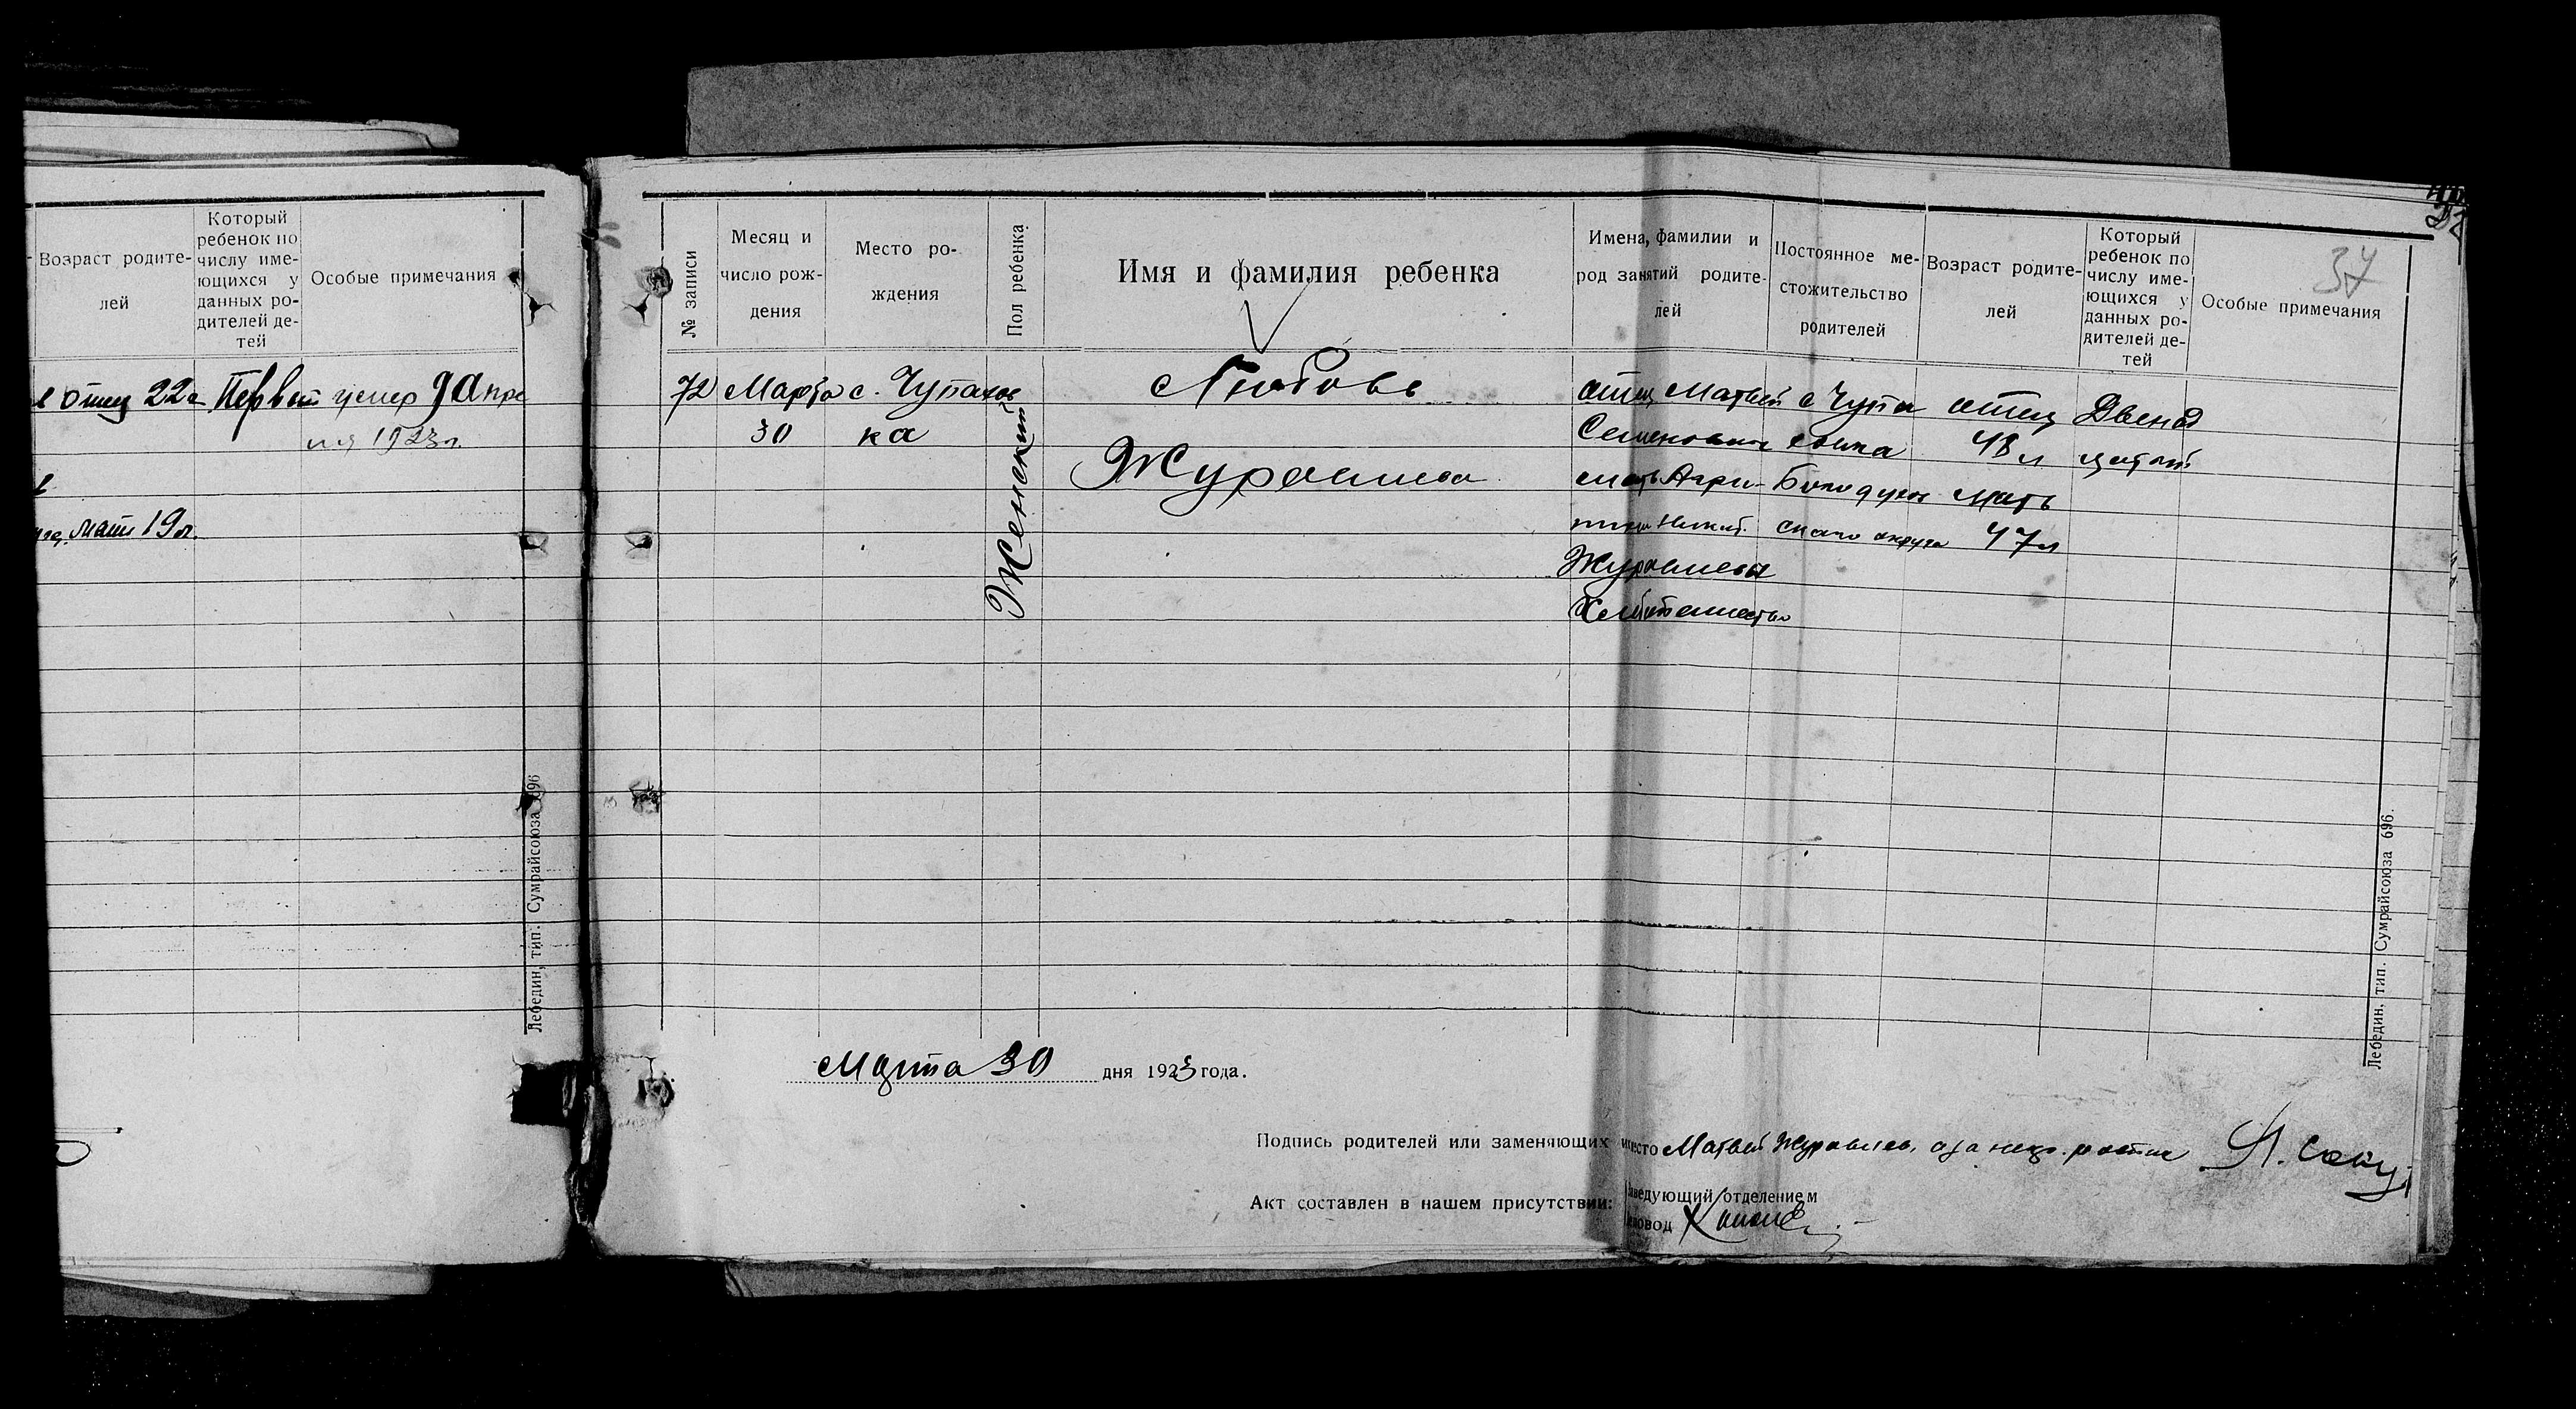 Возраст родите-
лей
Который
ребенок по
числу име-
ющихся у
данных ро-
дителей де-
тей
Особые примечания
отец 22 Первый умер 9 Апре
ля 1923 г.
мать 19 л.
Лебедин, тип. Сумрайсоюза 696
37
№ записи
Месяц и
число рож-
дения
Место ро-
ждения
Пол ребенка
Имя и фамилия ребенка
Имена, фамилии и
род занятий родите-
лей
Постоянное ме-
стожительство
родителей
Возраст родите-
лей
Который
ребенок по
числу име-
ющихся у
данных ро-
дителей де-
тей
Особые примечания
72 Марта с. Чупахов Любовь отец Матвей с Чупа отец Двенад
30 ка Семенович ховка 48 л цатый
Женский
Журавлева мать Агри- Богодухов мать
пина Никит. скаго округа 47 л
Журавлевы
Хлебопашество
Марта 30 дня 1923 года.
Подпись родителей или заменяющих место Матвей Журавлев, а за негр. распис
Акт составлен в нашем присутствии: Заведующий отделением
Деловод
Лебедин, тип. Сумрайсоюза 696.